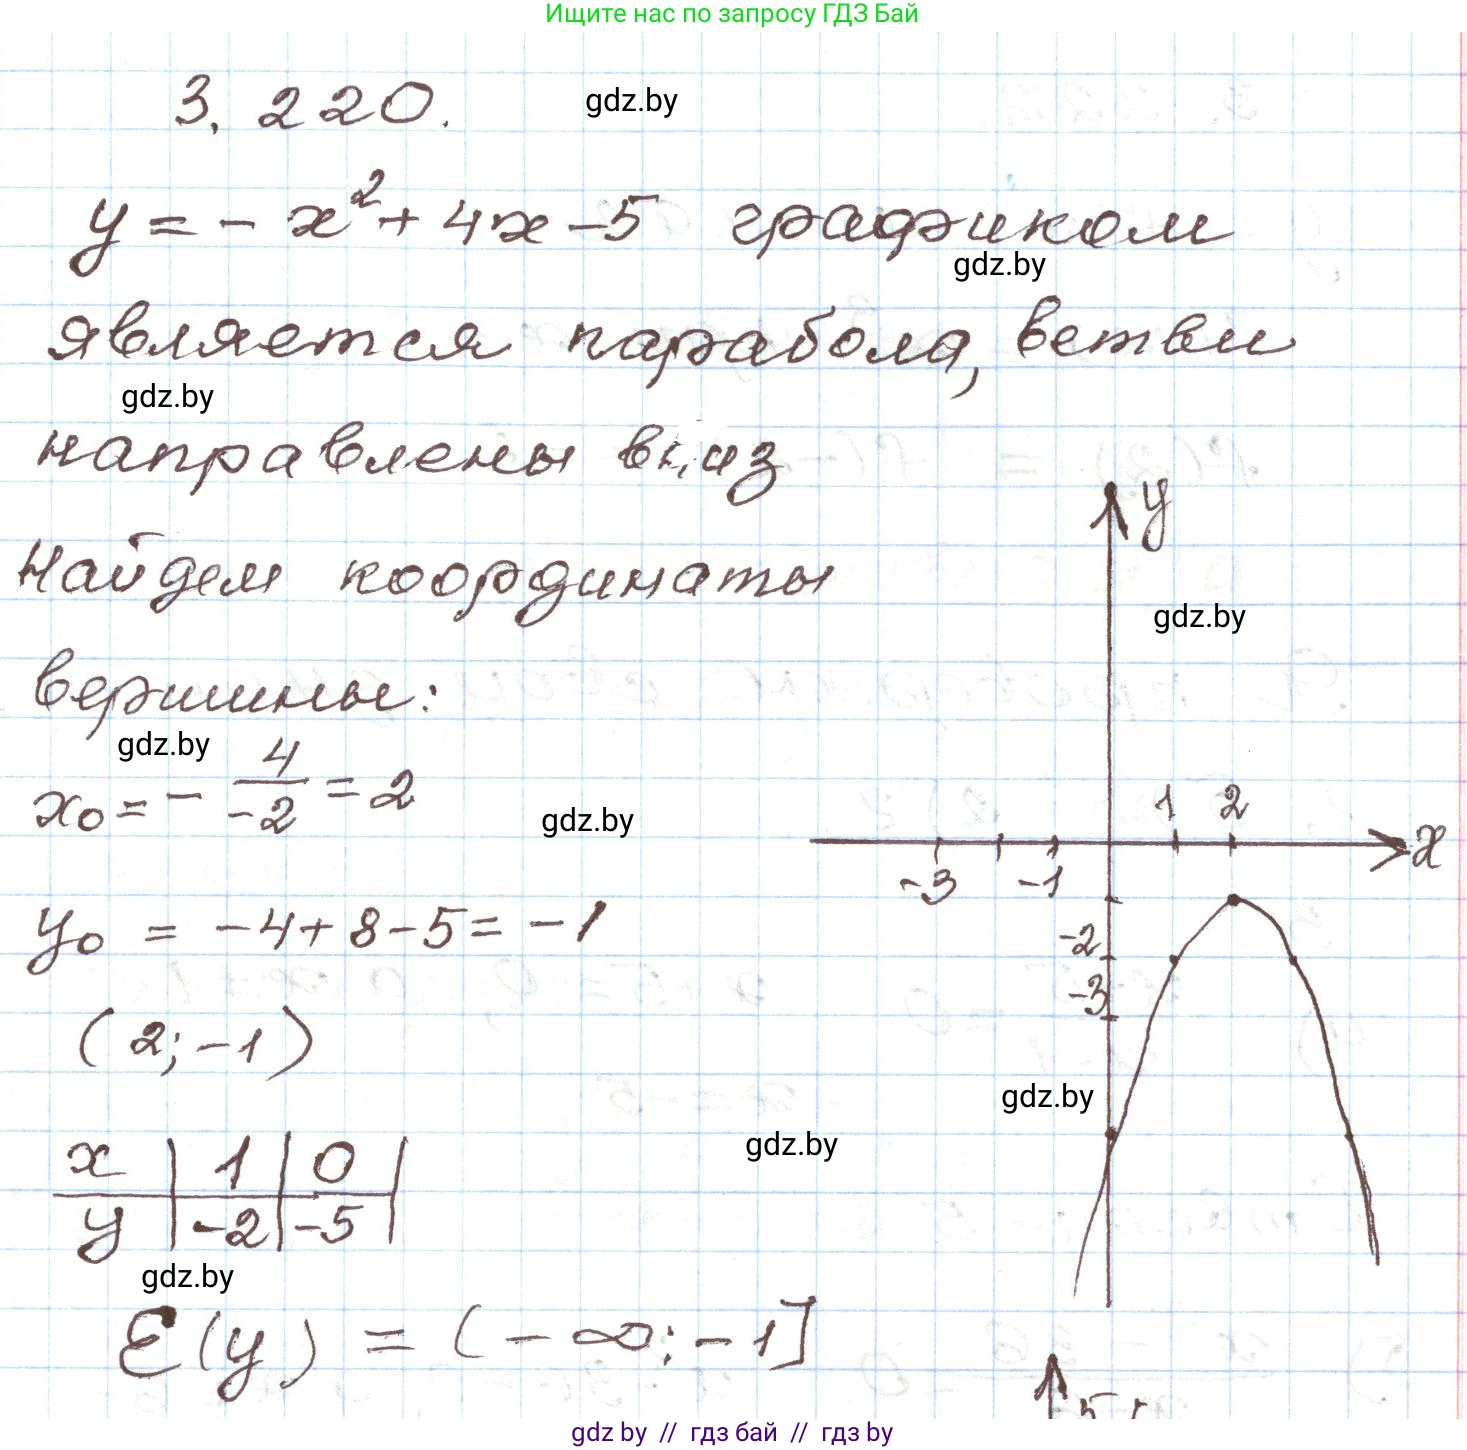 Ищите нас по запросу ГДЗ Бай
3.220.
gdz.by
y = - x² + 4x - 5 графиком
gdz.by
является парабола, ветви
gdz.by
направлены вниз
y
Найдем координаты
gdz.by
вершины:
gdz.by
x₀ = - 4/-2 = 2
gdz.by
1 2
x
-3 -1
y₀ = -4 + 8 - 5 = -1
-2
-3
(2; -1)
gdz.by
gdz.by
x | 1 | 0 |
y | -2 | -5 |
gdz.by
E(y) = (-∞; -1]
5
gdz by // гдз бай // гдз by